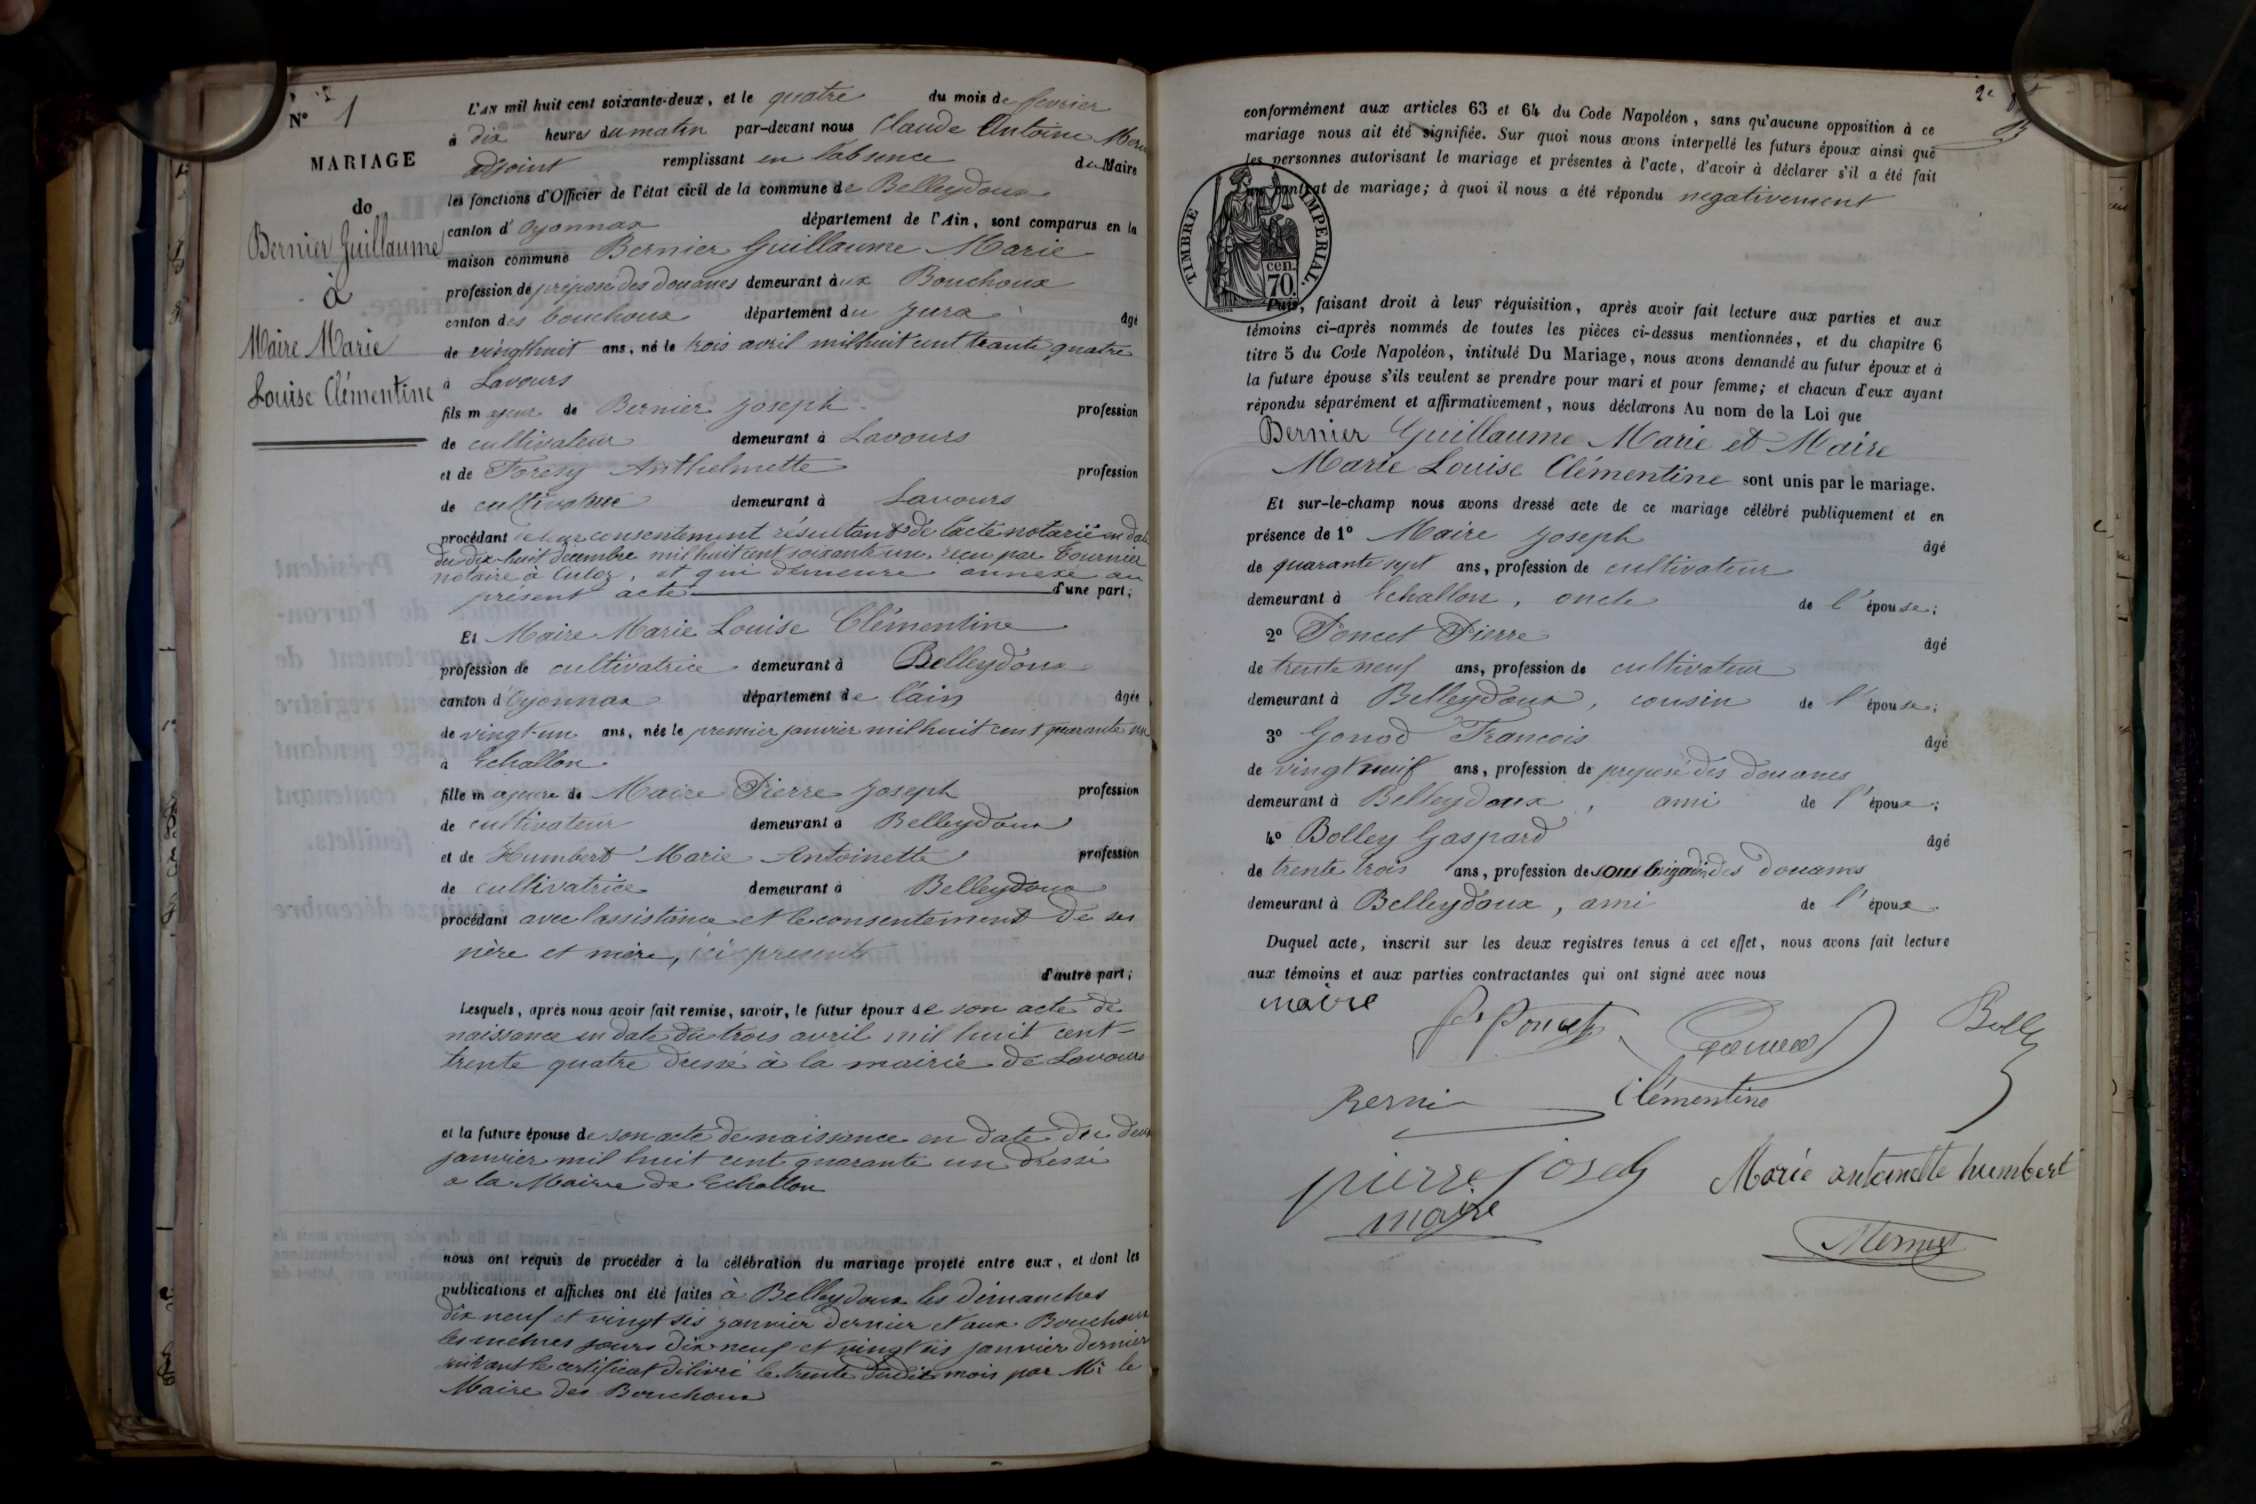 N° 1
MARIAGE
de
Bernier Guillaume
à
Maire Marie
Louise Clémentine
L'AN mil huit cent soixante-deux, et le quatre du mois de fevrier
à dix heures du matin par-devant nous Claude Antoine
adjoint remplissant en l'absence du Maire
les fonctions d'Officier de l'état civil de la commune de Belleydoux
canton d'Oyonnax département de l'Ain, sont comparus en la
maison commune Bernier Guillaume Marie
profession de préposé des douanes demeurant aux Bouchoux
canton des bouchoux département du Jura âgé
de vingthuit ans, né le trois avril mil huit cent trente quatre
à Lavours
fils majeur de Bernier Joseph profession
de cultivateur demeurant à Lavours
et de Anthelmette profession
de cultivatrice demeurant à Lavours
procédant de leur consentement résultant de l'acte notarié en date
du dix-huit décembre mil huit cent soixante un, reçu par Tournier
notaire à Culoz, et qui demeure annexé au
présent acte d'une part;
Et Maire Marie Louise Clémentine
profession de cultivatrice demeurant à Belleydoux
canton d'Oyonnax département de l'ain âgée
de vingt un ans, née le premier janvier mil huit cent quarante un
à Echallon
fille majeure de Maire Pierre Joseph profession
de cultivateur demeurant à Belleydoux
et de Humbert Marie Antoinette profession
de cultivatrice demeurant à Belleydoux
procédant avec l'assistance et le consentement de ses
père et mère, ici présents
d'autre part;
Lesquels, après nous avoir fait remise, savoir, le futur époux de son acte de
naissance en date du trois avril mil huit cent-
trente quatre dressé à la mairie de Lavours
et la future épouse de son acte de naissance en date du deux
janvier mil huit cent quarante un dressé
a la Mairie de Echallon
nous ont requis de procéder à la célébration du mariage projeté entre eux, et dont les
publications et affiches ont été faites à Belleydoux les dimanches
dix neuf et vingt six janvier dernier et aux Bouchoux
les mêmes jours dix neuf et vingt six janvier dernier
suivant le certificat délivré le trente dudit mois par Mr le
Maire des Bouchoux
2e
conformément aux articles 63 et 64 du Code Napoléon, sans qu'aucune opposition à ce
mariage nous ait été signifiée. Sur quoi nous avons interpellé les futurs époux ainsi que
les personnes autorisant le mariage et présentes à l'acte, d'avoir à déclarer s'il a été fait
un contrat de mariage; à quoi il nous a été répondu negativement
TIMBRE IMPERIAL.
70. cen.
Puis, faisant droit à leur réquisition, après avoir fait lecture aux parties et aux
témoins ci-après nommés de toutes les pièces ci-dessus mentionnées, et du chapitre 6
titre 5 du Code Napoléon, intitulé Du Mariage, nous avons demandé au futur époux et à
la future épouse s'ils veulent se prendre pour mari et pour femme; et chacun d'eux ayant
répondu séparément et affirmativement, nous déclarons Au nom de la Loi que
Bernier Guillaume Marie et Maire
Marie Louise Clémentine sont unis par le mariage.
Et sur-le-champ nous avons dressé acte de ce mariage célébré publiquement et en
présence de 1° Maire Joseph âgé
de quarante sept ans, profession de cultivateur
demeurant à Echallon, oncle de l'épouse;
2° Poncet Pierre âgé
de trente neuf ans, profession de cultivateur
demeurant à Belleydoux, cousin de l'épouse;
3° Gonod Francois âgé
de vingt neuf ans, profession de preposé des douanes
demeurant à Belleydoux, ami de l'époux;
4° Bolley Gaspard âgé
de trente trois ans, profession de sous brigadier des douanes
demeurant à Belleydoux, ami de l'époux.
Duquel acte, inscrit sur les deux registres tenus à cet effet, nous avons fait lecture
aux témoins et aux parties contractantes qui ont signé avec nous
maire
P. Poncet
Bolley
Bernier
Clémentine
pierre joseph
maire
Marie antoinette humbert